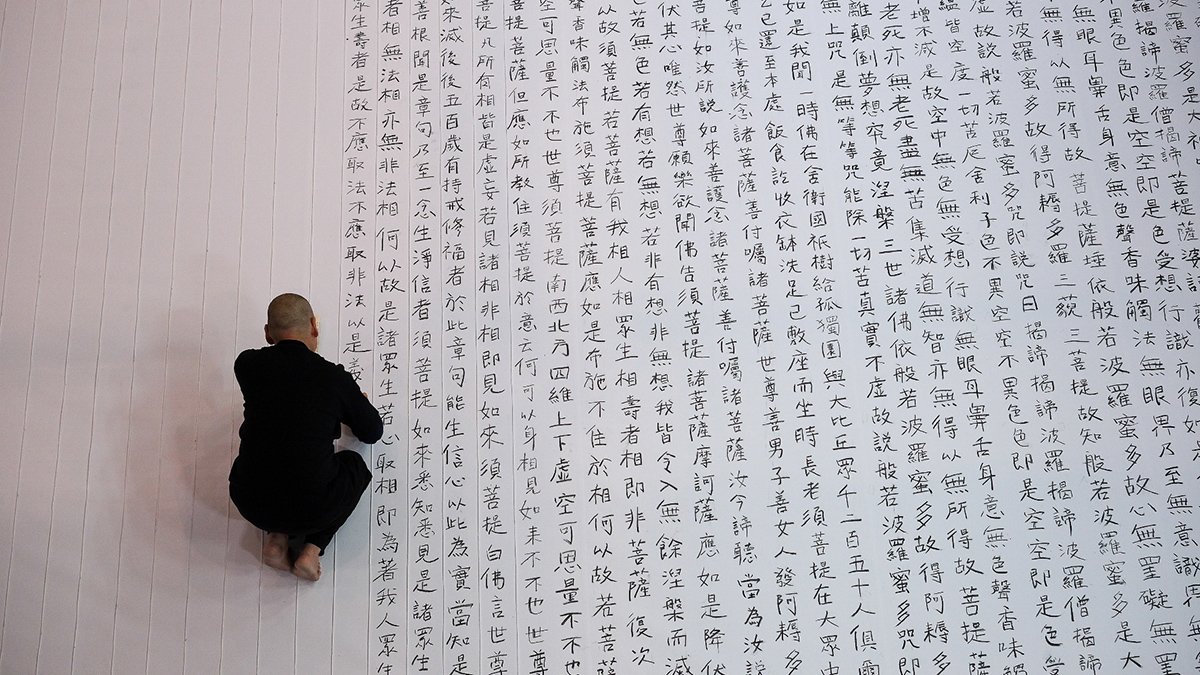 波羅蜜多是大神
羅揭諦波羅僧揭諦菩提薩婆訶
不異色色即是空空即是色受想行識亦復如是
無眼耳鼻舌身意無色聲香味觸法無眼界乃至無意識界無
無得以無所得故菩提薩埵依般若波羅蜜多故心無罣礙無罣
若波羅蜜多故得阿耨多羅三藐三菩提故知般若波羅蜜多是大
虛故說般若波羅蜜多咒即說咒曰揭諦揭諦波羅揭諦波羅僧揭諦
蘊皆空度一切苦厄舍利子色不異空空不異色色即是空空即是色受
增不減是故空中無色無受想行識無眼耳鼻舌身意無色聲香味觸
老死亦無老死盡無苦集滅道無智亦無得以無所得故菩提薩
離顛倒夢想究竟涅槃三世諸佛依般若波羅蜜多故得阿耨多
無上咒是無等等咒能除一切苦真實不虛故說般若波羅蜜多咒即
如是我聞一時佛在舍衛國祇樹給孤獨園與大比丘眾千二百五十人俱爾
乞已還至本處飯食訖收衣缽洗足已敷座而坐時長老須菩提在大眾中
尊如來善護念諸菩薩善付囑諸菩薩世尊善男子善女人發阿耨多
菩提如汝所說如來善護念諸菩薩善付囑諸菩薩汝今諦聽當為汝說
伏其心唯然世尊願樂欲聞佛告須菩提諸菩薩摩訶薩應如是降伏
若無色若有想若無想若非有想非無想我皆令入無餘涅槃而滅
以故須菩提若菩薩有我相人相眾生相壽者相即非菩薩復次
聲香味觸法布施須菩提菩薩應如是布施不住於相何以故若菩薩
空可思量不不也世尊須菩提南西北方四維上下虛空可思量不不也
菩提菩薩但應如所教住須菩提於意云何可以身相見如來不不也世尊
菩提凡所有相皆是虛妄若見諸相非相即見如來須菩提白佛言世尊
來滅後後五百歲有持戒修福者於此章句能生信心以此為實當知是
善根聞是章句乃至一念生淨信者須菩提如來悉知悉見是諸眾生
者相無法相亦無非法相何以故是諸眾生若心取相即為著我人眾生
眾生壽者是故不應取法不應取非法以是義